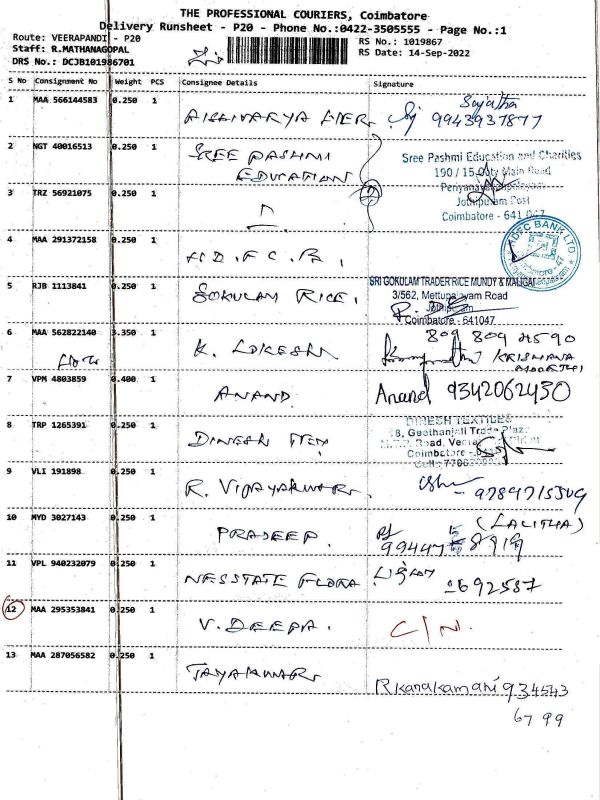 THE PROFESSIONAL COURIERS, Coimbatore
Delivery Runsheet - P20 - Phone No.:0422-3505555 - Page No.:1
Route: VEERAPANDI - P20
Staff: R.MATHANAGOPAL
DRS No.: DCJB101986701
RS No.: 1019867
RS Date: 14-Sep-2022
S No Consignment No Weight PCS Consignee Details Signature
1 MAA 566144583 0.250 1 Sujatha
9943937877
2 NGT 40016513 0.250 1 SREE PASHMI
EDUCATION
Sree Pashmi Education and Charities
190 / 15 Main Road
3 TRZ 56921075 0.250 1
Jothipuram Post
Coimbatore - 641 047
4 MAA 291372158 0.250 1 H.D.F.C.B.
HDFC BANK LTD
5 RJB 1113841 0.250 1 GOKULAM RICE.
SRI GOKULAM TRADER RICE MUNDY & MALIGAI
3/562, Mettupalayam Road
Jothipuram
Coimbatore - 641047
6 MAA 562822140 3.350 1 K. LOKESH
809 809 4590
KRISHNA
MOORTHI
7 VPM 4803859 0.400 1 ANAND
Anand 9342062450
8 TRP 1265391 0.250 1 DINESH TEX
DINESH TEXTILES
Geethanjali Trade Plaza
Road,
Coimbatore
9 VLI 191898 0.250 1 R. VIJAYAKUMAR.
10 MYD 3027143 0.250 1 PRADEEP.
(LALITHA)
11 VPL 940232079 0.250 1 NESSTATE FLORA
12 MAA 295353841 0.250 1 V. DEEPA. C/N.
13 MAA 287056582 0.250 1 JAYAKUMAR
Rkanakamani 934543
6799